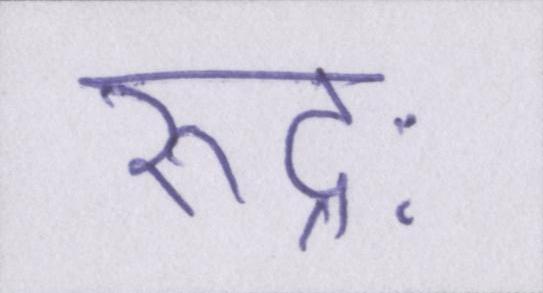 रुद्रः